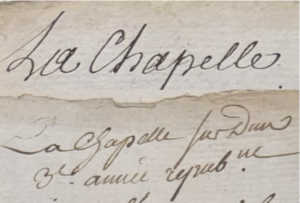 La Chapelle
La Chapelle sur Dun
3e. année repub.ne